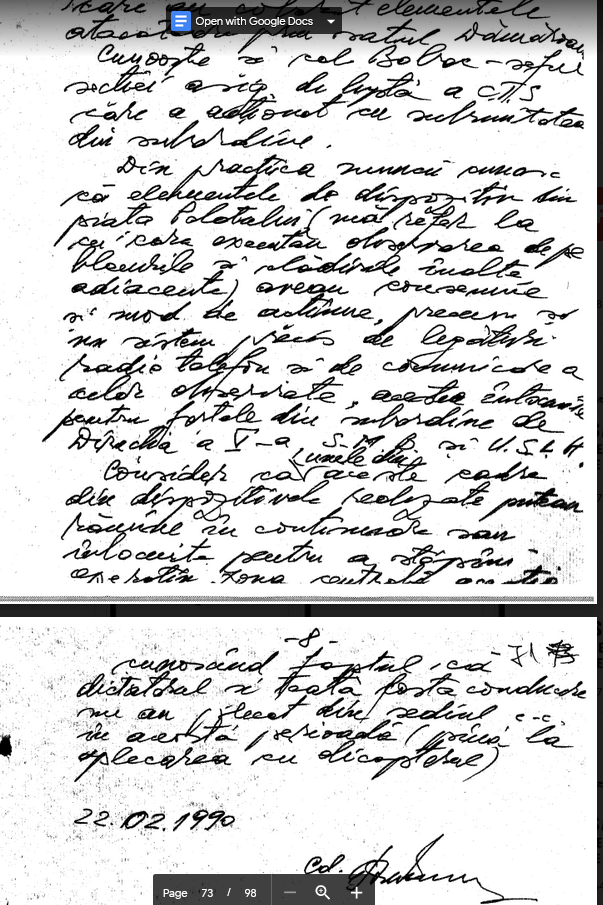 care au coborît elementele
Open with Google Docs
atacatori prin satul Dămăroaia
Cunoaște și col Boboc - șeful
secției asig. de luptă a C.T.S
care a acționat cu subunitatea
din subordine.
Din practica muncii cunosc
că elementele de dispozitiv din
piața Palatului (mă refer la
cei care executau observarea de pe
blocurile și clădirile înalte
adiacente) aveau consemne
și mod de acțiune, precum și
un sistem precis de legături
radio telefon și de comunicare a
celor observate, acestea
pentru forțele din subordine de
Direcția a V-a S.M.B și U.S.L.A.
Consider că unele din aceste cadre
din dispozitivele realizate puteau
rămîne în continuare sau
înlocuite pentru a stăpîni
operativ zona centrală
-8-
71
cunoscînd faptul că
dictatorul și toată fosta conducere
nu au plecat din sediul c.c.
în această perioadă (pînă la
plecarea cu elicopterul)
22.02.1990
Col.
Page 73 / 98